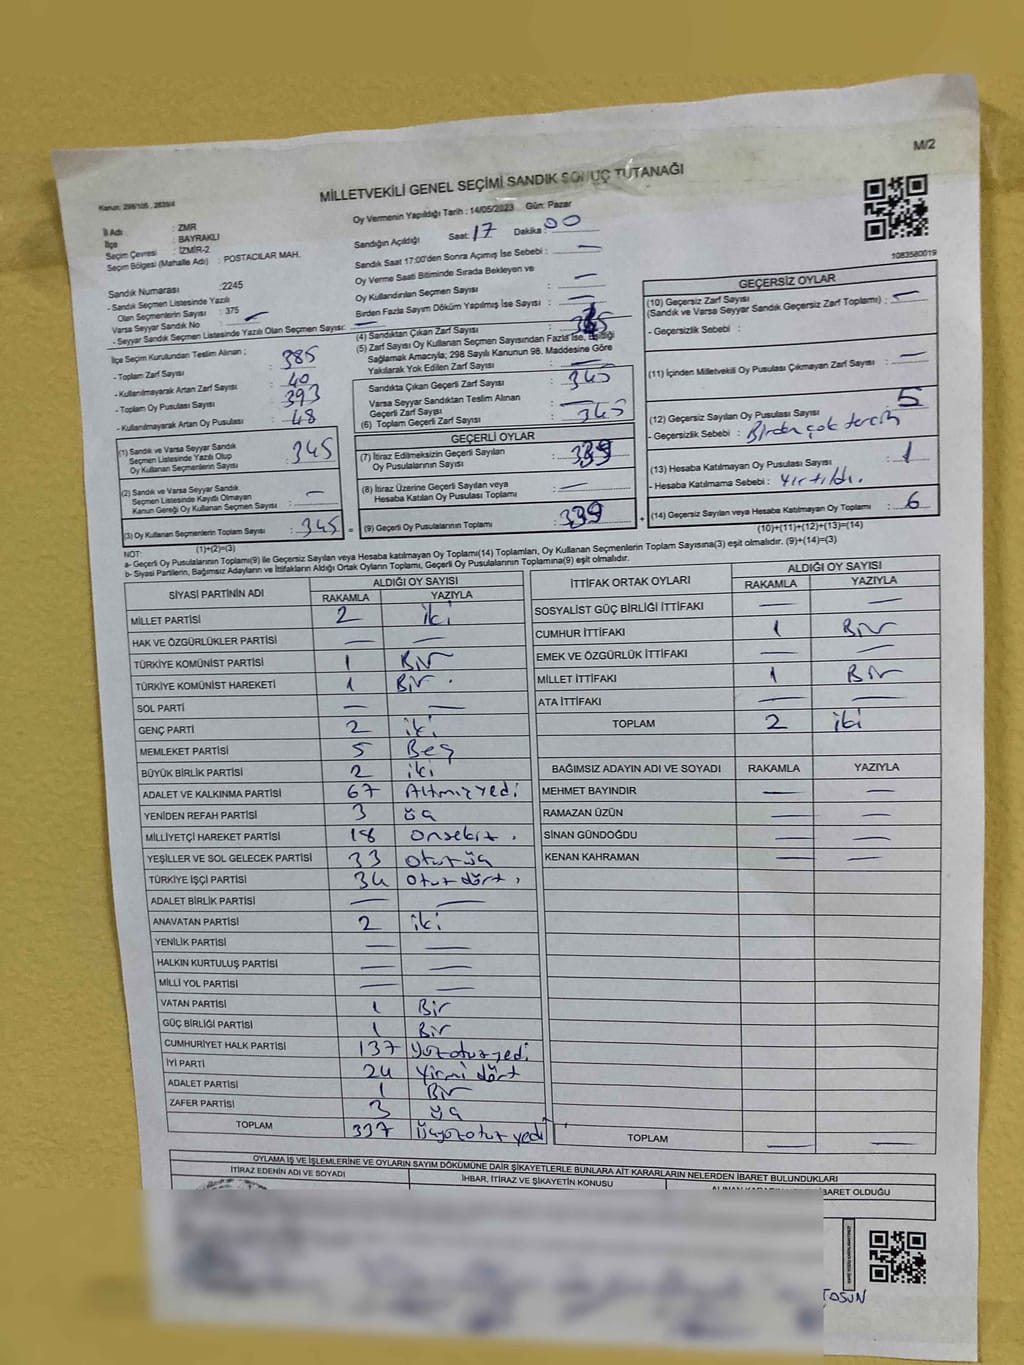 M/2
MİLLETVEKİLİ GENEL SEÇİMİ SANDIK SONUÇ TUTANAĞI
Kanun: 298/105 , 2839/4
İl Adı : ZMR
İlçe : BAYRAKLI
Seçim Çevresi : İZMİR-2
Seçim Bölgesi (Mahalle Adı) : POSTACILAR MAH.
Sandık Numarası :2245
- Sandık Seçmen Listesinde Yazılı
Olan Seçmenlerin Sayısı : 375
Varsa Seyyar Sandık No : —
- Seyyar Sandık Seçmen Listesinde Yazılı Olan Seçmen Sayısı: —
İlçe Seçim Kurulundan Teslim Alınan ;
- Toplam Zarf Sayısı : 385
- Kullanılmayarak Artan Zarf Sayısı : 40
- Toplam Oy Pusulası Sayısı : 393
- Kullanılmayarak Artan Oy Pusulası : 48
(1) Sandık ve Varsa Seyyar Sandık
Seçmen Listesinde Yazılı Olup
Oy Kullanan Seçmenlerin Sayısı : 345
(2) Sandık ve Varsa Seyyar Sandık
Seçmen Listesinde Kaydı Olmayan
Kanun Gereği Oy Kullanan Seçmen Sayısı : —
(3) Oy Kullanan Seçmenlerin Toplam Sayısı : 345 =
(1)+(2)=(3)
Oy Vermenin Yapıldığı Tarih : 14/05/2023 Gün: Pazar
Sandığın Açıldığı Saat: 17 Dakika: 00
Sandık Saat 17:00'den Sonra Açımış İse Sebebi : —
Oy Verme Saati Bitiminde Sırada Bekleyen ve
Oy Kullandırılan Seçmen Sayısı : —
Birden Fazla Sayım Döküm Yapılmış İse Sayısı : —
(4) Sandıktan Çıkan Zarf Sayısı : 345
(5) Zarf Sayısı Oy Kullanan Seçmen Sayısından Fazla İse, Eşitliği
Sağlamak Amacıyla; 298 Sayılı Kanunun 98. Maddesine Göre
Yakılarak Yok Edilen Zarf Sayısı : —
Sandıkta Çıkan Geçerli Zarf Sayısı : 345
Varsa Seyyar Sandıktan Teslim Alınan
Geçerli Zarf Sayısı : —
(6) Toplam Geçerli Zarf Sayısı : 345
GEÇERLİ OYLAR
(7) İtiraz Edilmeksizin Geçerli Sayılan
Oy Pusulalarının Sayısı : 339
(8) İtiraz Üzerine Geçerli Sayılan veya
Hesaba Katılan Oy Pusulası Toplamı : —
(9) Geçerli Oy Pusulalarının Toplamı : 339 +
1083580019
GEÇERSİZ OYLAR
(10) Geçersiz Zarf Sayısı
(Sandık ve Varsa Seyyar Sandık Geçersiz Zarf Toplamı) : —
- Geçersizlik Sebebi :
(11) İçinden Milletvekili Oy Pusulası Çıkmayan Zarf Sayısı : —
(12) Geçersiz Sayılan Oy Pusulası Sayısı : 5
- Geçersizlik Sebebi : Birden çok tercih
(13) Hesaba Katılmayan Oy Pusulası Sayısı : 1
- Hesaba Katılmama Sebebi : Yırtıldı.
(14) Geçersiz Sayılan veya Hesaba Katılmayan Oy Toplamı : 6
(10)+(11)+(12)+(13)=(14)
NOT:
a- Geçerli Oy Pusulalarının Toplamı(9) ile Geçersiz Sayılan veya Hesaba katılmayan Oy Toplamı(14) Toplamları, Oy Kullanan Seçmenlerin Toplam Sayısına(3) eşit olmalıdır. (9)+(14)=(3)
b- Siyasi Partilerin, Bağımsız Adayların ve İttifakların Aldığı Ortak Oyların Toplamı, Geçerli Oy Pusulalarının Toplamına(9) eşit olmalıdır.
SİYASİ PARTİNİN ADI ALDIĞI OY SAYISI
RAKAMLA YAZIYLA
MİLLET PARTİSİ 2 iki
HAK VE ÖZGÜRLÜKLER PARTİSİ — —
TÜRKİYE KOMÜNİST PARTİSİ 1 Bir
TÜRKİYE KOMÜNİST HAREKETİ 1 Bir .
SOL PARTİ — —
GENÇ PARTİ 2 iki
MEMLEKET PARTİSİ 5 Beş
BÜYÜK BİRLİK PARTİSİ 2 iki
ADALET VE KALKINMA PARTİSİ 67 Altmışyedi
YENİDEN REFAH PARTİSİ 3 üç
MİLLİYETÇİ HAREKET PARTİSİ 18 onsekiz .
YEŞİLLER VE SOL GELECEK PARTİSİ 33 otuzüç
TÜRKİYE İŞÇİ PARTİSİ 34 otuzdört .
ADALET BİRLİK PARTİSİ — —
ANAVATAN PARTİSİ 2 iki
YENİLİK PARTİSİ — —
HALKIN KURTULUŞ PARTİSİ — —
MİLLİ YOL PARTİSİ — —
VATAN PARTİSİ 1 Bir
GÜÇ BİRLİĞİ PARTİSİ 1 Bir
CUMHURİYET HALK PARTİSİ 137 Yüzotuzyedi
İYİ PARTİ 24 Yirmi dört
ADALET PARTİSİ 1 Bir
ZAFER PARTİSİ 3 üç
TOPLAM 337 Üçyüzotuz yedi
İTTİFAK ORTAK OYLARI ALDIĞI OY SAYISI
RAKAMLA YAZIYLA
SOSYALİST GÜÇ BİRLİĞİ İTTİFAKI — —
CUMHUR İTTİFAKI 1 Bir
EMEK VE ÖZGÜRLÜK İTTİFAKI — —
MİLLET İTTİFAKI 1 Bir
ATA İTTİFAKI — —
TOPLAM 2 iki
BAĞIMSIZ ADAYIN ADI VE SOYADI RAKAMLA YAZIYLA
MEHMET BAYINDIR — —
RAMAZAN ÜZÜN — —
SİNAN GÜNDOĞDU — —
KENAN KAHRAMAN — —
TOPLAM — —
OYLAMA İŞ VE İŞLEMLERİNE VE OYLARIN SAYIM DÖKÜMÜNE DAİR ŞİKAYETLERLE BUNLARA AİT KARARLARIN NELERDEN İBARET BULUNDUKLARI
İTİRAZ EDENİN ADI VE SOYADI İHBAR, İTİRAZ VE ŞİKAYETİN KONUSU
İBARET OLDUĞU
TOSUN